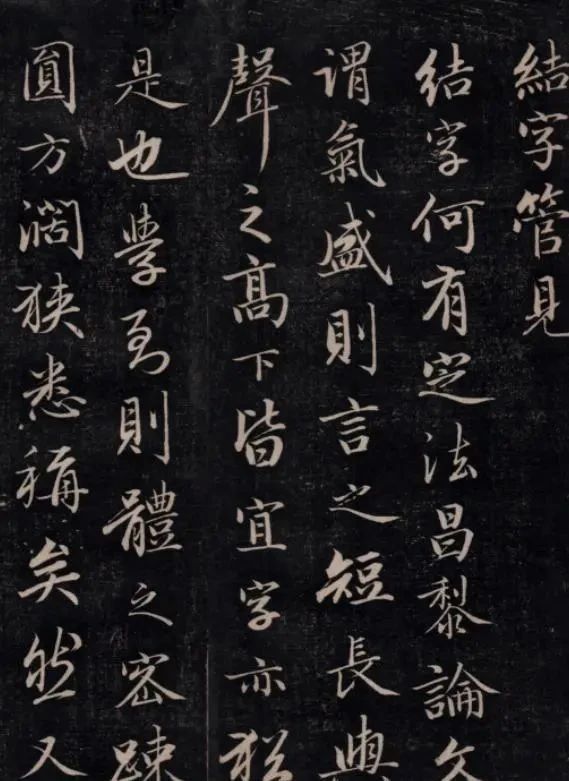 結字管見
結字何有定法昌黎論文
謂氣盛則言之短長與
聲之髙下皆宜字亦猶
是也學到則體之密疎
圓方濶狹悉稱矣然又